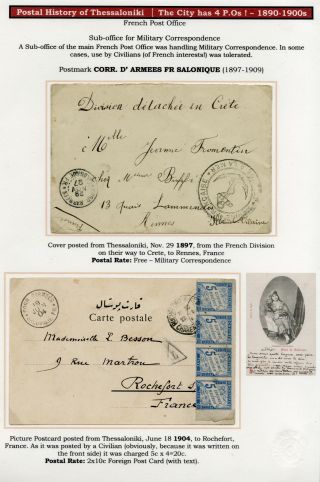 Postal History of Thessaloniki | The City has 4 P.Os ! – 1890-1900s
French Post Office
Sub-office for Military Correspondence
A Sub-office of the main French Post Office was handling Military Correspondence. In some
cases, use by Civilians (of French interests!) was tolerated.
Postmark CORR. D' ARMEES FR SALONIQUE (1897-1909)
Division détachée en Crète
Mlle Jeanne Fromentin
chez Messrs Buffé
13 Quais Lammenais
Rennes
Cover posted from Thessaloniki, Nov. 29 1897, from the French Division
on their way to Crete, to Rennes, France
Postal Rate: Free – Military Correspondence
Carte postale
Mademoiselle L. Besson
9 Rue Martrou
Rochefort s/
France
5
5
5
5
T
Picture Postcard posted from Thessaloniki, June 18 1904, to Rochefort,
France. As it was posted by a Civilian (obviously, because it was written on
the front side) it was charged 5c x 4=20c.
Postal Rate: 2x10c Foreign Post Card (with text).